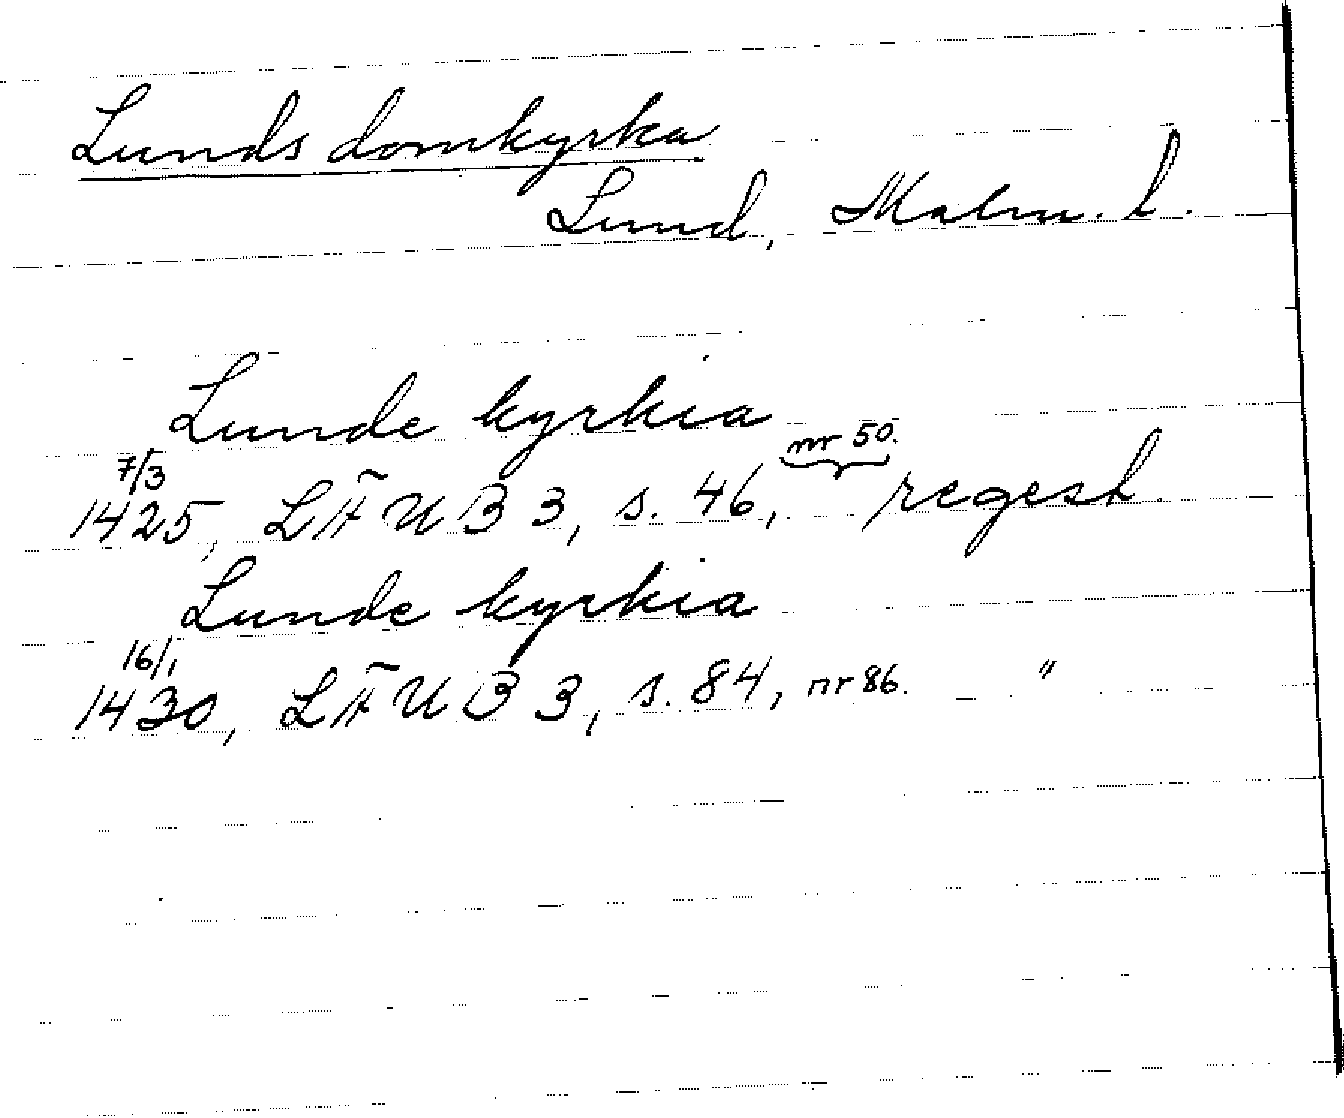 Lunds domkyrka
Lund, Malm. l.
Lunde kyrkia
7/3 nr 50.
1425, LÄUB 3, s. 46, regest
Lunde kyrkia
16/1
1430, LÄUB 3, s. 84, nr 86. "